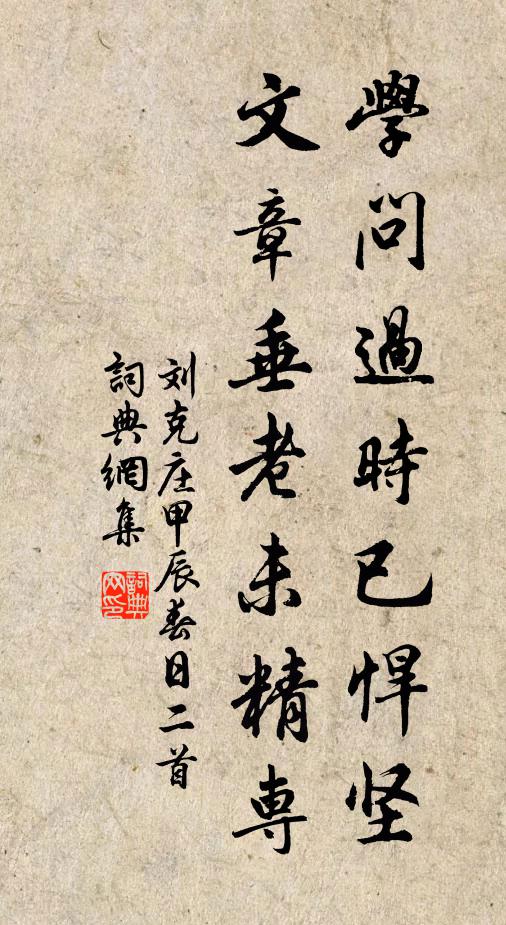 學問過時已悍坚
文章垂老未精専
刘克庄甲辰春日二首
詞典網集
詞典
网印